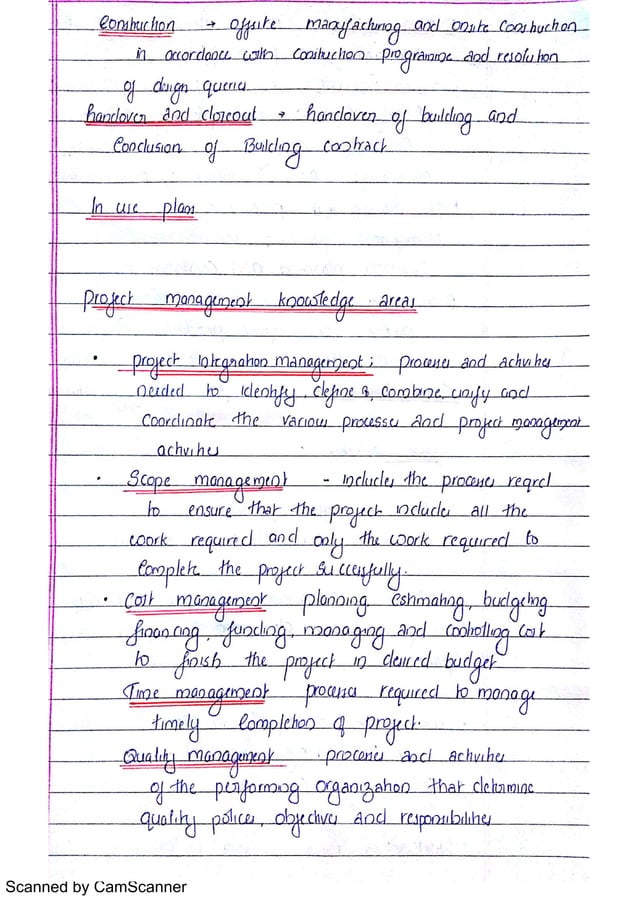 Construction → offsite manufacturing and onsite construction
in accordance with construction programme and resolution
of design queries
handover and closeout → handover of building and
Conclusion of Building contract
In use plans
Project management knowledge areas
• Project integration management; processes and activities
needed to identify, define &, combine, unify and
Coordinate the various processes and project management
activities
• Scope management - includes the processes reqrd
to ensure that the project includes all the
work required and only the work required to
Complete the project successfully.
• Cost management planning, estimating, budgeting
financing, funding, managing and controlling cost
to finish the project in desired budget
Time management processes required to manage
timely Completion of project.
Quality management . processes and activities
of the performing organization that determine
quality polices, objectives and responsibilities
Scanned by CamScanner